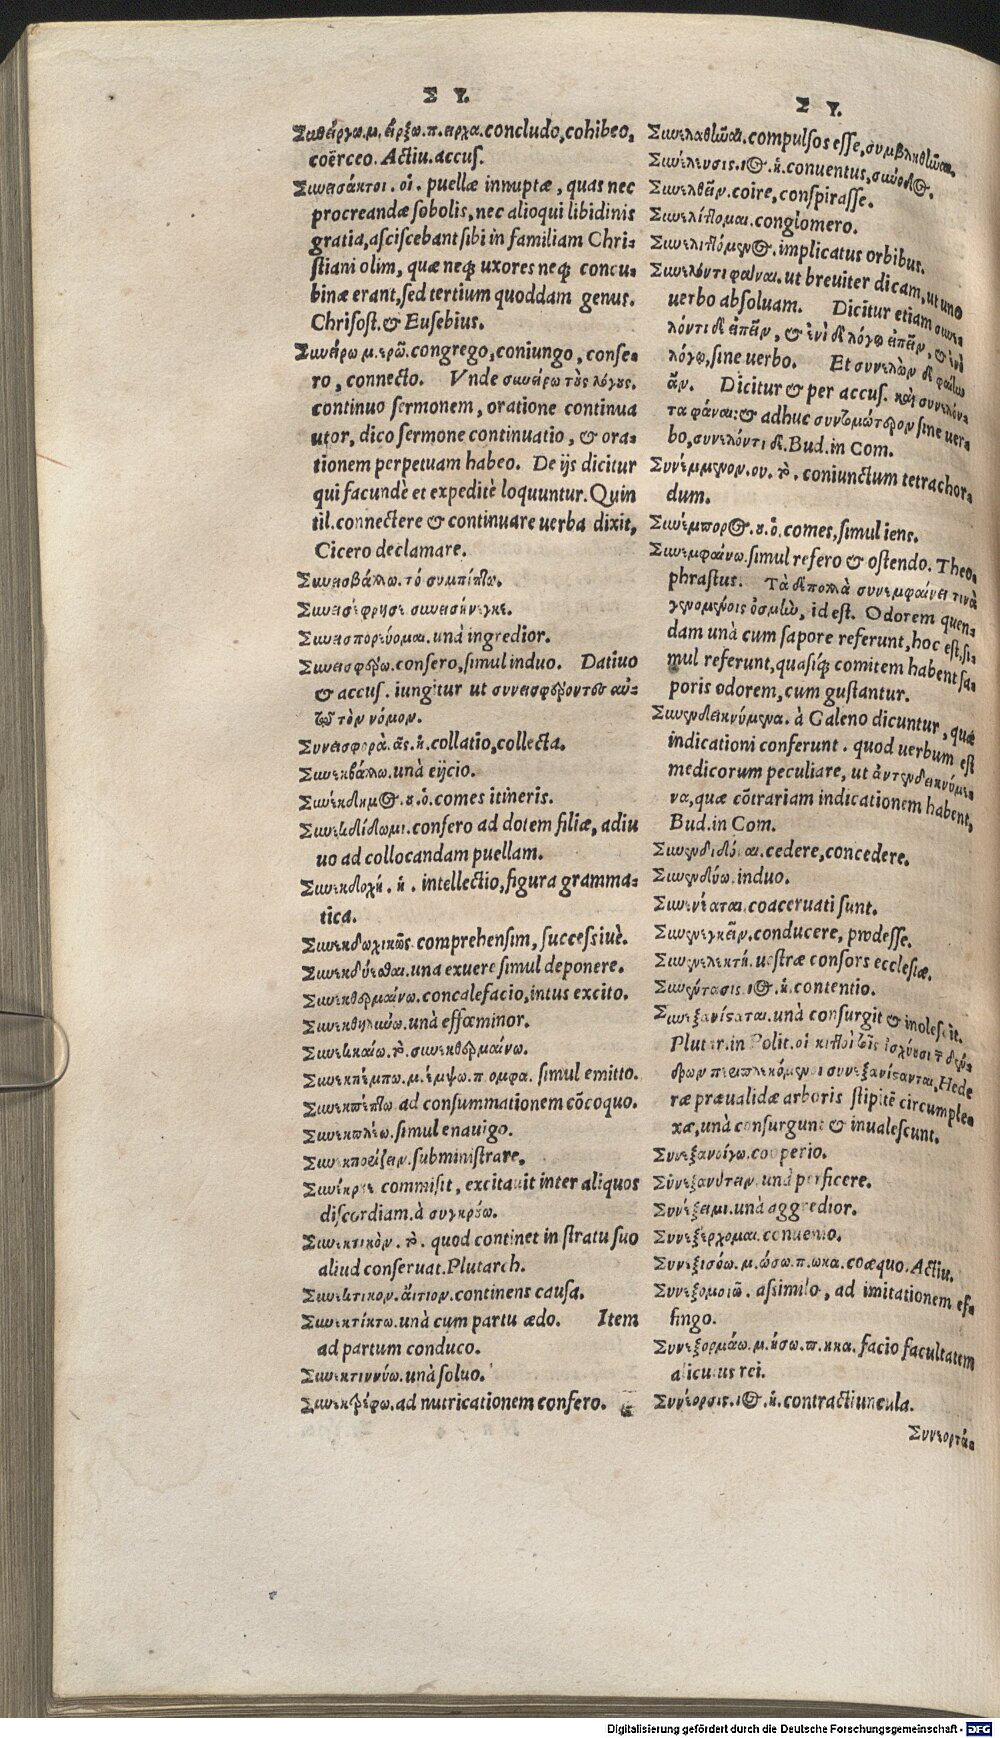 Σ Υ.
Συνείργω.μ.είρξω.π.ειρχα.concludo,cohibeo,
coërceo. Actiu.accus.
Συνεισάκτοι.οἱ. puellæ innuptæ, quas nec
procreandæ sobolis, nec alioqui libidinis
gratia, asciscebant sibi in familiam Chri-
stiani olim, quæ neq; uxores neq; concu-
binæ erant, sed tertium quoddam genus.
Chrisost. & Eusebius.
Συνείρω μ.ερῶ.congrego, coniungo, conse-
ro, connecto. Vnde συνείρω τοὺς λόγους.
continuo sermonem, oratione continua
utor, dico sermone continuatio, & ora-
tionem perpetuam habeo. De ijs dicitur
qui facundè et expeditè loquuntur. Quin
til.connectere & continuare uerba dixit,
Cicero declamare.
Συνεισβάλλω.τό συμπίπτω.
Συνεισέφρησε συνεισήνεγκε.
Συνεισπορεύομαι.unà ingredior.
Συνεισφέρω.confero, simul induo. Datiuo
& accus. iungitur ut συνεισφέροντες αὐ-
τῷ τὸν νόμον.
Συνεισφορὰ.ᾶς.ἡ.collatio, collecta.
Συνεκβάλλω.unà eijcio.
Συνέκδημος.ου.ὁ.comes itineris.
Συνεκδίδωμι.confero ad dotem filiæ, adiu
uo ad collocandam puellam.
Συνεκδοχή.ἡ. intellectio, figura gramma-
tica.
Συνεκδοχικῶς comprehensim, successiuè.
Συνεκδύεσθαι.una exuere simul deponere.
Συνεκθερμαίνω.concalefacio, intus excito.
Συνεκθηλύνω.unà effœminor.
Συνεκκαίω.τὸ συνεκθερμαίνω.
Συνεκπέμπω.μ.έμψω.π ομφα. simul emitto.
Συνεκπέπτω ad consummationem cōcoquo.
Συνεκπλέω.simul enauigo.
Συνεκπορίζειν.subministrare.
Συνέκρουε commisit, excitauit inter aliquos
discordiam.à συγκρούω.
Συνεκτικὸν.τὸ. quod continet in stratu suo
aliud conseruat. Plutarch.
Συνεκτικον.αἴτιον.continens causa.
Συνεκτίκτω.unà cum partu ædo. Item
ad partum conduco.
Συνεκτιννύω.unà soluo.
Συνεκτρέφω.ad nutricationem confero.
Σ Υ.
Συνελαθῶναι.compulsos esse, συμβληθῶναι.
Συνέλευσις.ιος.ἡ.conuentus, σύνοδος.
Συνελθεῖν.coire, conspirasse.
Συνελίττομαι.conglomero.
Συνελιττόμενος.implicatus orbibus.
Συνελόντι φαῖναι.ut breuiter dicam, ut uno
uerbo absoluam. Dicitur etiam συνε-
λόντι δὲ εἰπεῖν, & ἑνὶ δὲ λόγῳ εἰπεῖν, & ἑνὶ
λόγῳ, sine uerbo. Et συνελὼν δὲ φαίην
ἄν. Dicitur & per accus. καὶ συνελόν-
τα φάναι: & adhuc συντομώτερον sine uer-
bo, συνελόντι δὲ. Bud. in Com.
Συνέμμενον.ου.τὸ. coniunctum tetrachor-
dum.
Συνέμπορος.ου.ὁ.comes, simul iens.
Συνεμφαίνω.simul refero & ostendo. Theo-
phrastus. Τὰ δὲ πολλὰ συνεμφαίνει τινὰ
γενομένοις ὀσμὼ, id est. Odorem quen-
dam unà cum sapore referunt, hoc est, si-
mul referunt, quasiq; comitem habent sa-
poris odorem, cum gustantur.
Συνενδεικνύμενα. à Galeno dicuntur, quæ
indicationi conferunt. quod uerbum est
medicorum peculiare, ut ἀντενδεικνύμε-
να, quæ cōtrariam indicationem habent,
Bud. in Com.
Συνενδιδόναι.cedere, concedere.
Συνενδύω.induo.
Συνενέαται.coaceruati sunt.
Συνενεγκεῖν.conducere, prodesse.
Συνενλεκτή.uestræ consors ecclesiæ.
Συνέντασις.ιος.ἡ.contentio.
Συνεξανίσταται.unà consurgit & inolescit.
Plutar. in Polit. οἱ κιττοὶ τοῖς ἰσχύουσι τῶ δέν-
δρων περιπλεκόμενοι συνεξανίστανται. Hede
ræ præualidæ arboris stipitē circumple-
xæ, unà consurgunt & inualescunt.
Συνεξανοίγω.cooperio.
Συνεξανύτειν unà perficere.
Συνέξειμι.unà aggredior.
Συνεξέρχομαι.conuenio.
Συνεξισόω.μ.ώσω.π.ωκα.coæquo. Actiu.
Συνεξομοιῶ. assimilo, ad imitationem ef-
fingo.
Συνεξορμάω.μ.ήσω.π.ηκα. facio facultatem
alicuius rei.
Συνέορσις.ιος.ἡ.contractiuncula.
Συνεορτά-
Digitalisierung gefördert durch die Deutsche Forschungsgemeinschaft - DFG